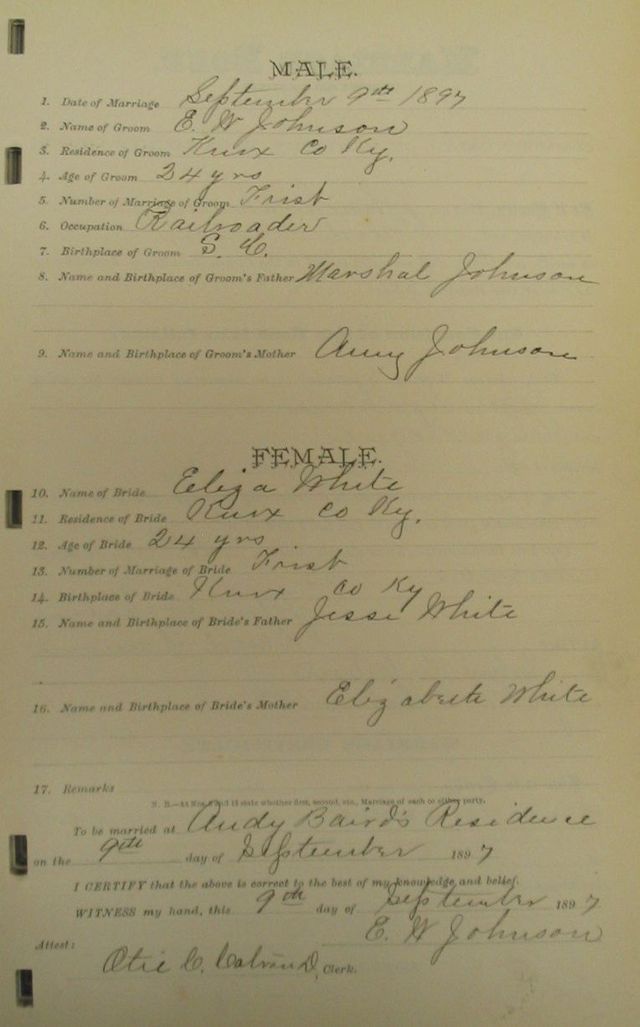 MALE.
1. Date of Marriage September 9th 1897
2. Name of Groom E. W Johnson
3. Residence of Groom Knox Co Ky.
4. Age of Groom 24 yrs
5. Number of Marriage of Groom Frist
6. Occupation Railroader
7. Birthplace of Groom S. C.
8. Name and Birthplace of Groom's Father Marshal Johnson
9. Name and Birthplace of Groom's Mother Johnson
FEMALE.
10. Name of Bride Eliza White
11. Residence of Bride Knox Co Ky.
12. Age of Bride 24 yrs
13. Number of Marriage of Bride Frist
14. Birthplace of Bride Knox Co Ky
15. Name and Birthplace of Bride's Father Jesse White
16. Name and Birthplace of Bride's Mother Elizabeth White
17. Remarks
N. B.—At Nos. 5 and 13 state whether first, second, etc., Marriage of each or either party.
To be married at Andy Baird's Residence
on the 9th day of September 1897
I CERTIFY that the above is correct to the best of my knowledge and belief.
WITNESS my hand, this 9th day of September 1897
E. W Johnson
Attest:
C. Clerk.